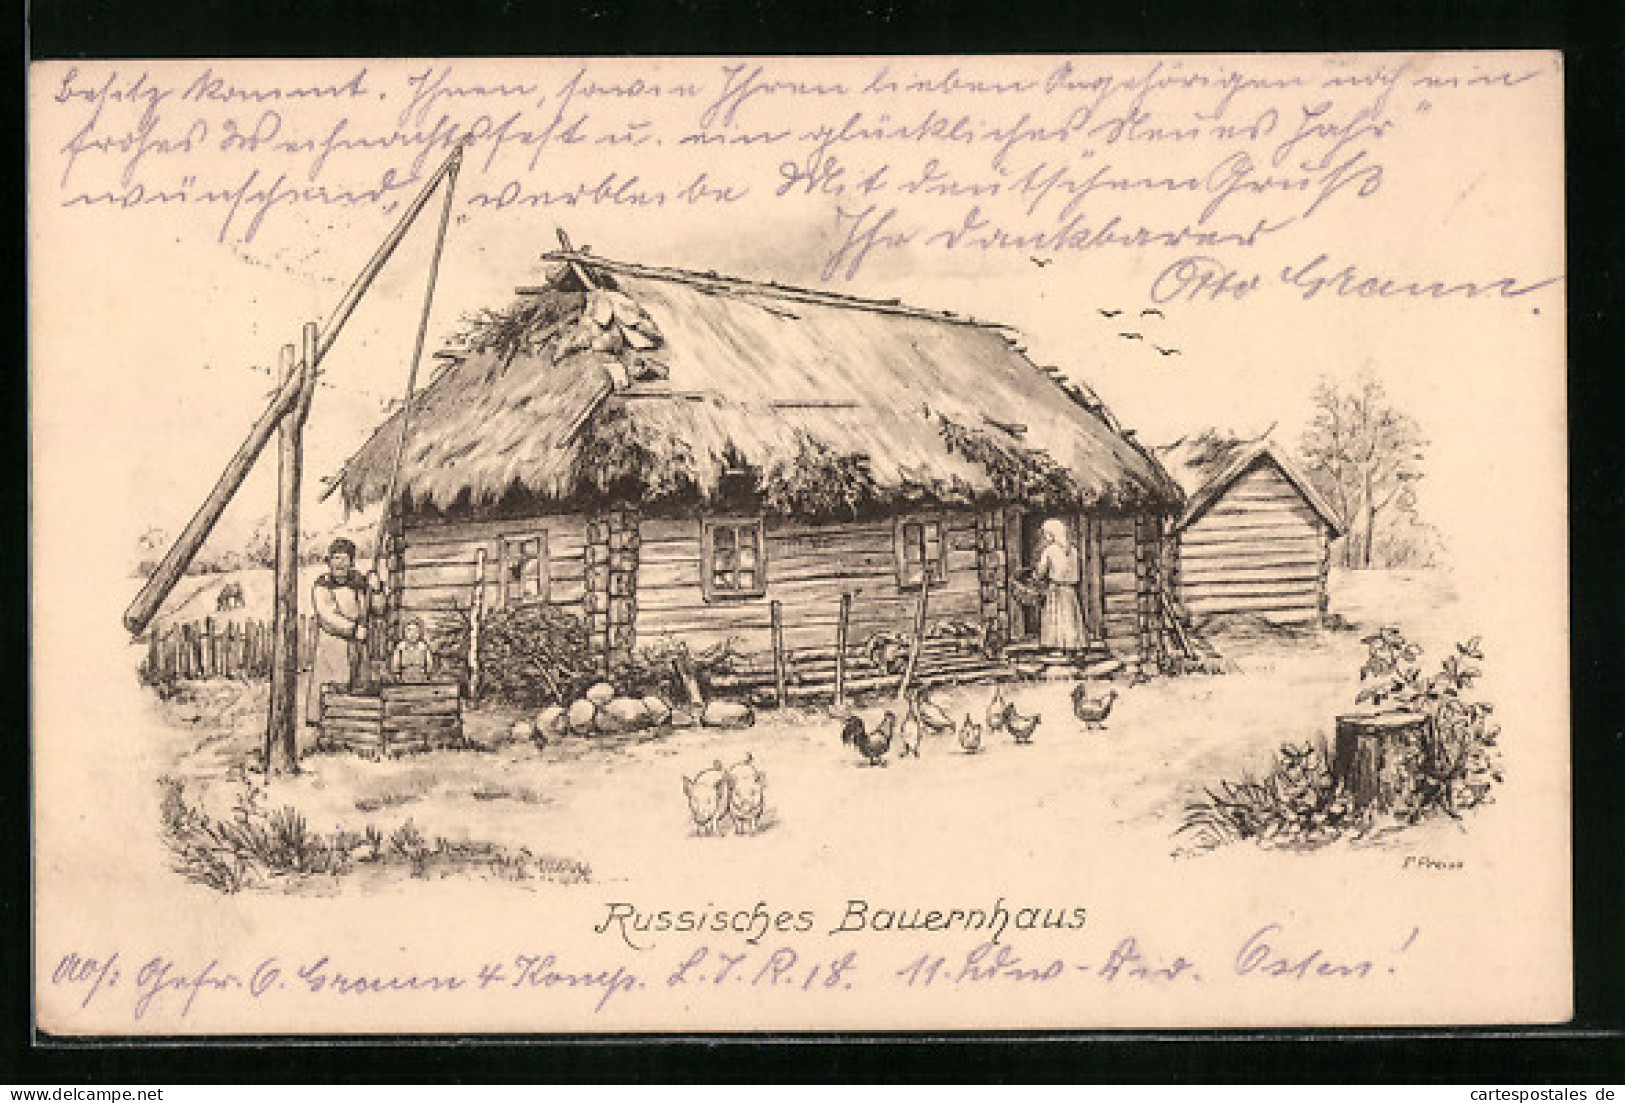 Besitz kommt. Ihnen, sowie Ihren lieben Angehörigen noch ein
frohes Weihnachtsfest u. ein glückliches „Neues Jahr“
wünschend, verbleibe Mit deutschem Gruß
Ihr dankbarer
Otto Gramm.
P. Preiss
Russisches Bauernhaus
Abs: Gefr. O. Gramm 4. Komp. L. I. R. 18. 11. Ldw-Div. Osten!
cartespostales de